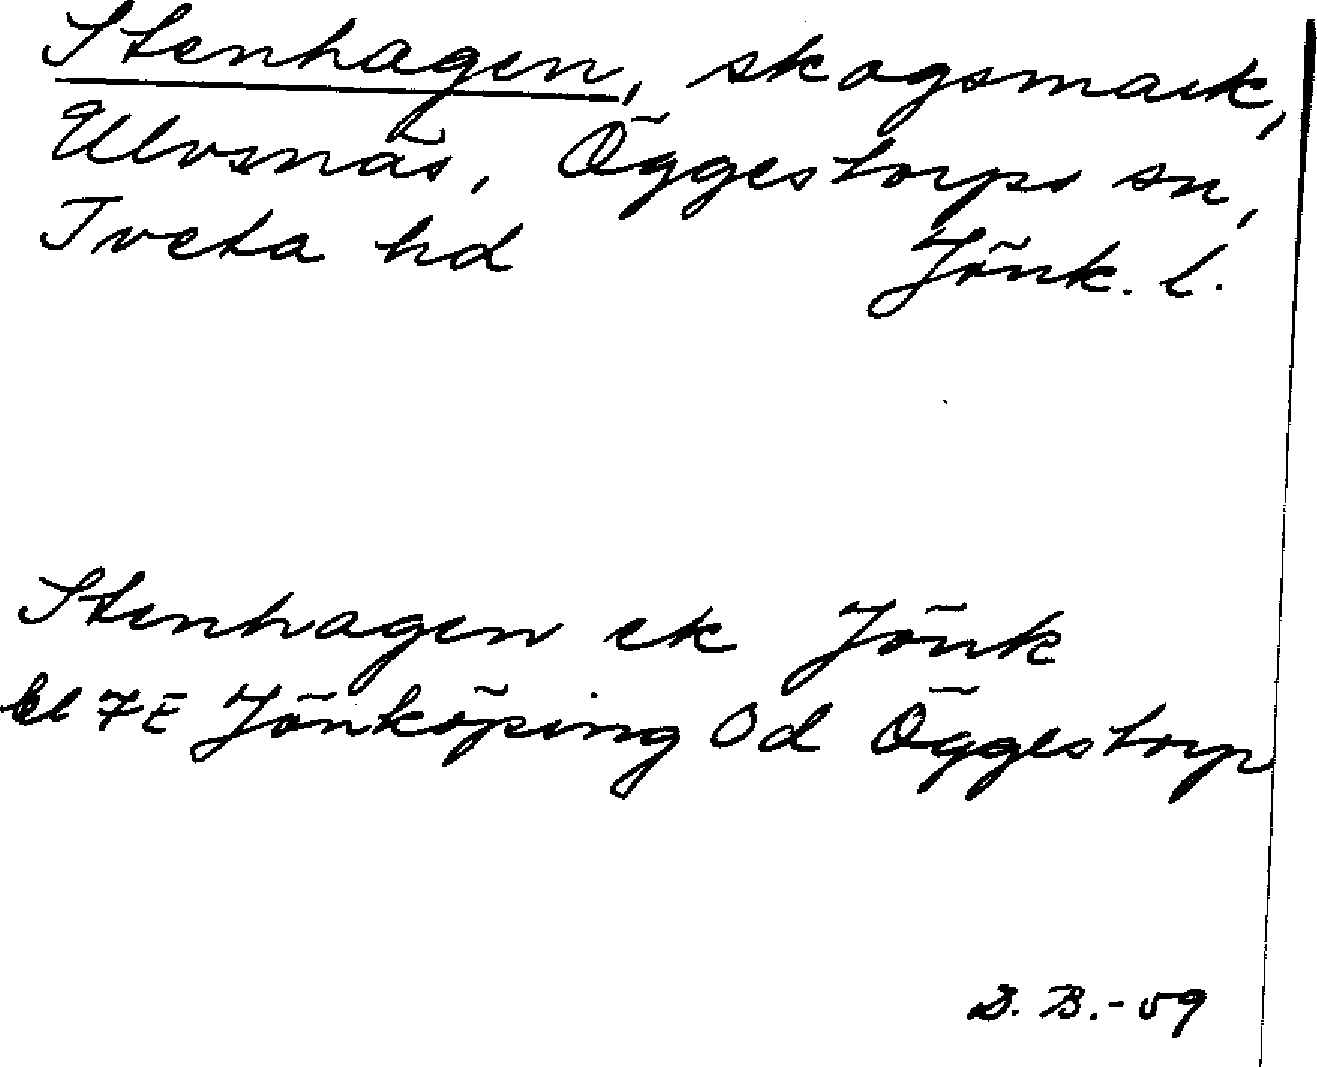 Stenhagen, skogsmark,
Ulvsnäs, Öggestorps sn,
Tveta hd Jönk. l.
Stenhagen ek Jönk
bl 7E Jönköping 0d Öggestorp
B.-59